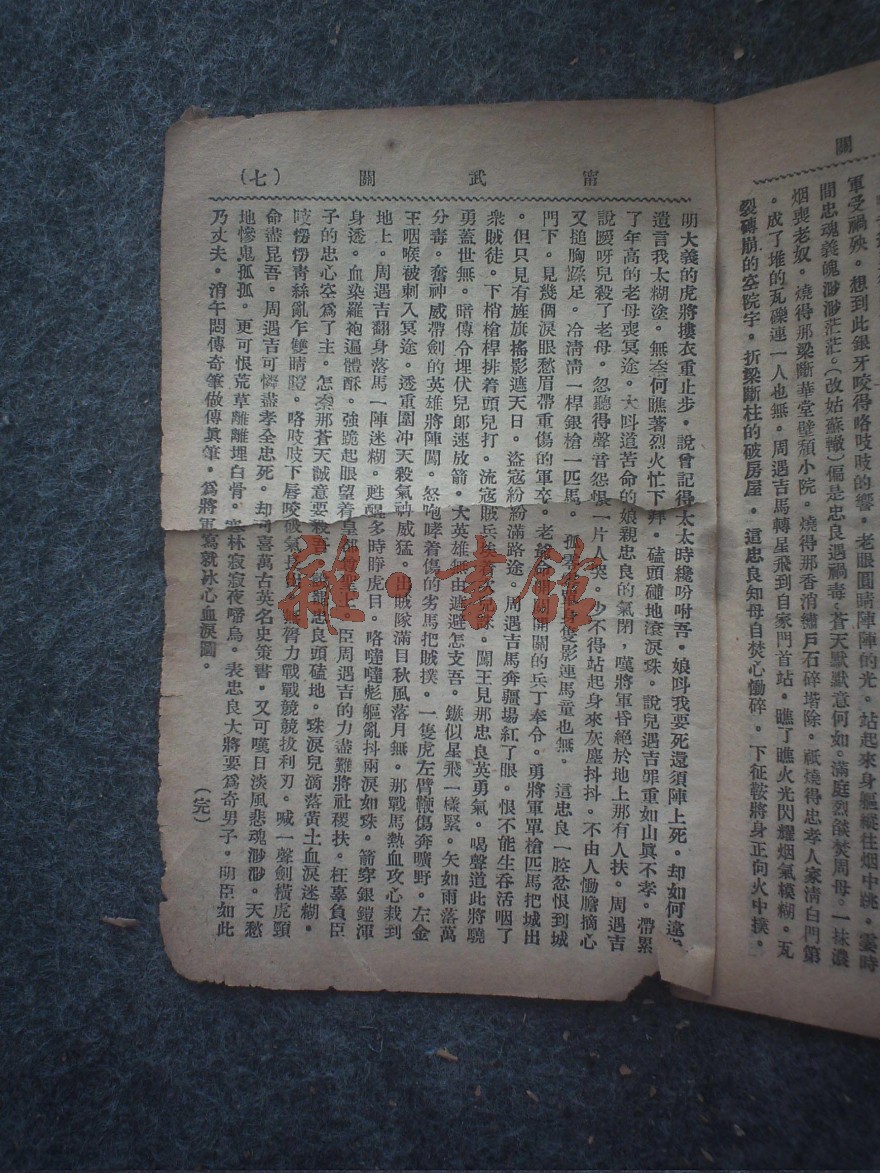 關
軍受禍殃。想到此銀牙咬得咯吱吱的響。老眼圓睛陣陣的光。站起來身軀縱住烟中跳。霎時
間忠魂義魄渺渺茫茫。(改姑蘇轍)偏是忠良遇禍毒。蒼天默默意何如。滿庭烈燄焚周母。一抹濃
烟喪老奴。燒得那梁斷華堂壁頹小院。燒得那香消繡戶石碎堦除。祇燒得忠孝人家淸白門第
。成了堆的瓦礫連一人也無。周遇吉馬轉星飛到自家門首站。瞧了瞧火光閃耀烟氣模糊。瓦
裂磚崩的空院宇。折梁斷柱的破房屋。這忠良知母自焚心慟碎。下征鞍將身正向火中撲。
甯武關 (七)
明大義的虎將摟衣重止步。說曾記得太太時纔吩咐吾。娘呌我要死還須陣上死。却如何違
遺言我太糊塗。無奈何瞧著烈火忙下拜。磕頭碰地滾淚珠。說兒遇吉罪重如山眞不孝。帶累
了年高的老母喪冥途。大呌道苦命的娘親忠良的氣閉。嘆將軍昏絕於地上那有人扶。周遇吉
說噯呀兒殺了老母。忽聽得聲音怨恨一片人哭。少不得站起身來灰塵抖抖。不由人慟膽摘心
又搥胸蹀足。冷淸淸一桿銀槍一匹馬。孤零零單身隻影連馬童也無。這忠良一腔忿恨到城
門下。見幾個淚眼愁眉帶重傷的軍卒。老爺命開關的兵丁奉令。勇將軍單槍匹馬把城出
。但只見有旌旗搖影遮天日。盜寇紛紛滿路途。周遇吉馬奔疆場紅了眼。恨不能生吞活咽了
衆賊徒。下梢槍桿排着頭兒打。流寇賊兵。闖王見那忠良英勇氣。喝聲道此將驍
勇蓋世無。暗傳令埋伏兒郎速放箭。大英雄無由遮避怎支吾。鏃似星飛一樣緊。矢如雨落萬
分毒。奮神威帶劍的英雄將陣闖。怒咆哮着傷的劣馬把賊撲。一隻虎左臂鞭傷奔曠野。左金
王咽喉被刺入冥途。透重圍冲天殺氣神威猛。出賊隊滿目秋風落月無。那戰馬熱血攻心栽到
地上。周遇吉翻身落馬一陣迷糊。甦醒多時睜虎目。咯噠噠彪軀亂抖兩淚如珠。箭穿銀鎧渾
身透。血染羅袍遍體酥。強跪起眼望着皇都臣周遇吉的力盡難將社稷扶。枉辜負臣
子的忠心空爲了主。怎奈那蒼天誠意要殺忠良頭磕地。珠淚兒滴落黃土血淚迷糊。
吱愣愣靑絲亂乍雙睛瞪。咯吱吱下唇咬破氣膂力戰戰兢兢拔利刃。喊一聲劍橫虎頸
命盡昆吾。周遇吉可憐盡孝全忠死。却可喜萬古英名史策書。又可嘆日淡風悲魂渺渺。天愁
地慘鬼孤孤。更可恨荒草離離埋白骨。寒林寂寂夜啼烏。表忠良大將要爲奇男子。明臣如此
乃丈夫。消午悶傳奇筆做傳眞筆。爲將軍寫就冰心血淚圖。(完)
雜·書館